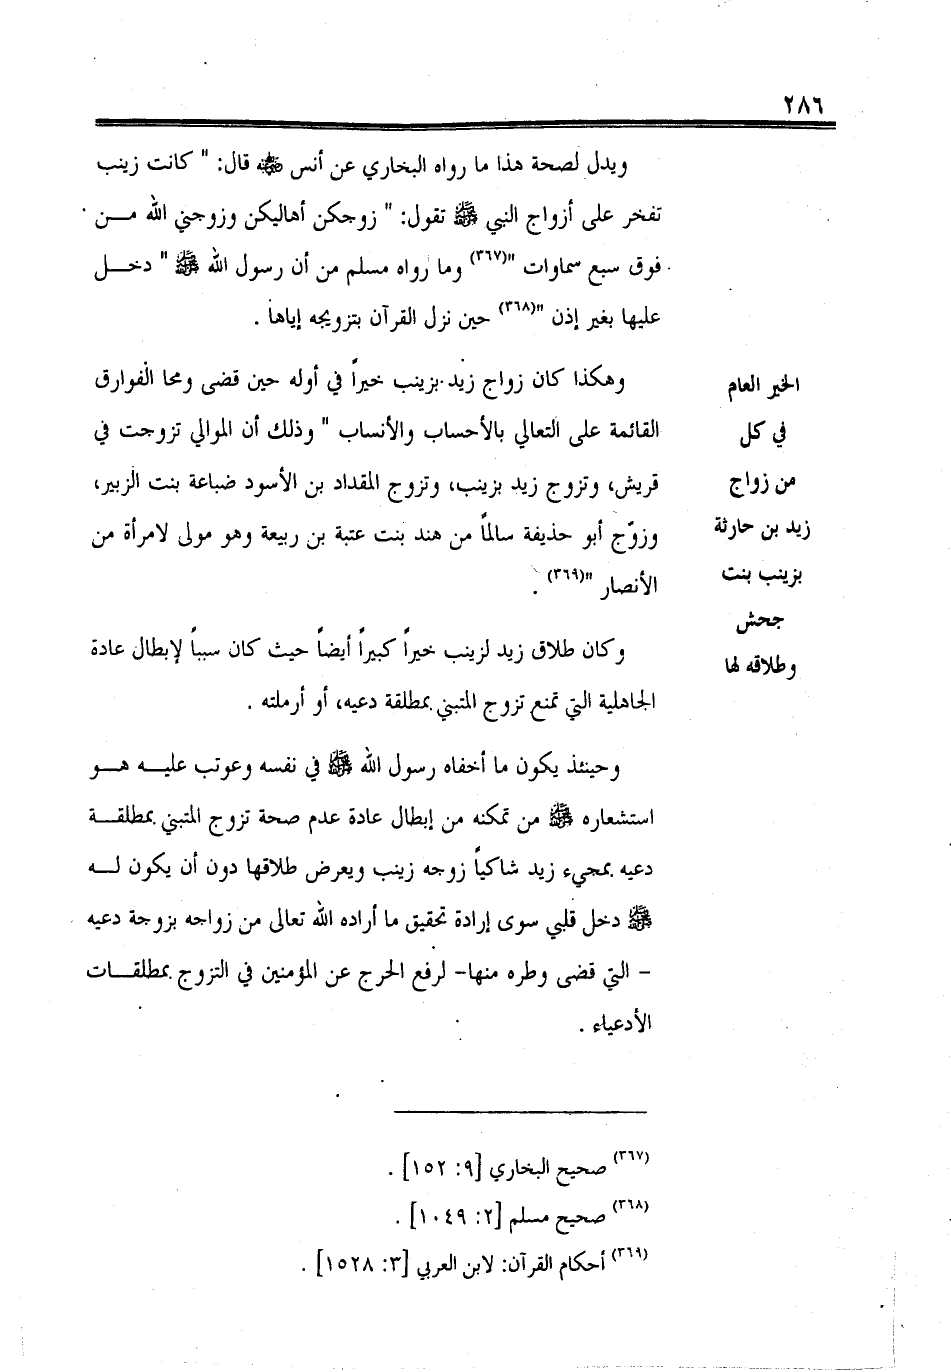 ٢٨٦
ويدل لصحة هذا ما رواه البخاري عن أنس ﷺ قال: " كانت زينب
تفخر على أزواج النبي ﷺ تقول: " زوجكن أهاليكن وزوجني الله مـــن
فوق سبع سماوات "(٣٦٧) وما رواه مسلم من أن رسول الله ﷺ " دخـــل
عليها بغير إذن "(٣٦٨) حين نزل القرآن بتزويجه إياها .
وهكذا كان زواج زيد بزينب خيراً في أوله حين قضى ومحا الفوارق
القائمة على التعالي بالأحساب والأنساب " وذلك أن الموالي تزوجت في
قريش، وتزوج زيد بزينب، وتزوج المقداد بن الأسود ضباعة بنت الزبير،
وزوّج أبو حذيفة سالماً من هند بنت عتبة بن ربيعة وهو مولى لامرأة من
الأنصار "(٣٦٩) .
الخير العام
في كل
من زواج
زيد بن حارثة
بزينب بنت
جحش
وطلاقه لها
وكان طلاق زيد لزينب خيراً كبيراً أيضاً حيث كان سبباً لإبطال عادة
الجاهلية التي تمنع تزوج المتبني بمطلقة دعيه، أو أرملته .
وحينئذ يكون ما أخفاه رسول الله ﷺ في نفسه وعوتب عليـــه هـــو
استشعاره ﷺ من تمكنه من إبطال عادة عدم صحة تزوج المتبني بمطلقـــة
دعيه بمجيء زيد شاكياً زوجه زينب ويعرض طلاقها دون أن يكون لـــه
ﷺ دخل قلبي سوى إرادة تحقيق ما أراده الله تعالى من زواجه بزوجة دعيه
- التي قضى وطره منها- لرفع الحرج عن المؤمنين في التزوج بمطلقـــات
الأدعياء .
(٣٦٧) صحيح البخاري [٩: ١٥٢] .
(٣٦٨) صحيح مسلم [٢: ١٠٤٩] .
(٣٦٩) أحكام القرآن: لابن العربي [٣: ١٥٢٨] .